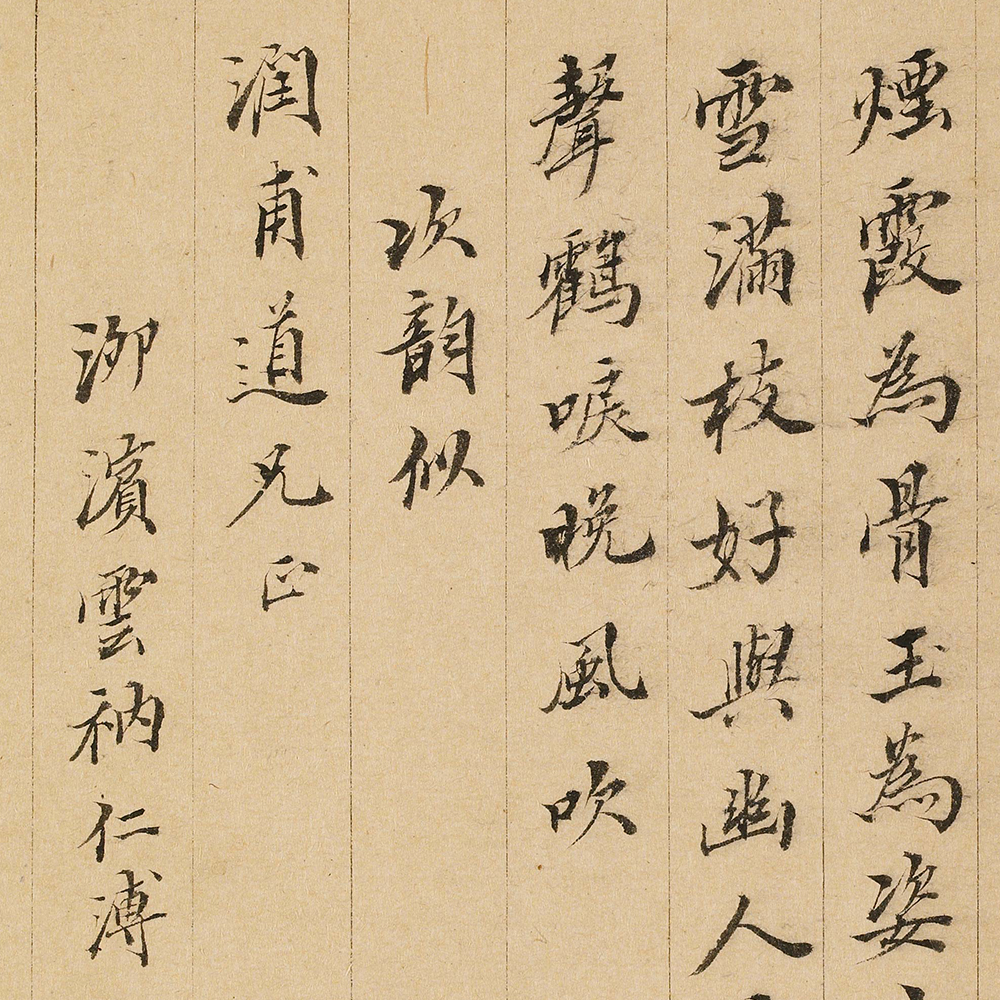 煙霞為骨玉為姿
雪滿枝好與幽人
聲鶴唳晚風吹
次韵似
潤甫道兄正
泖濱雲衲仁溥